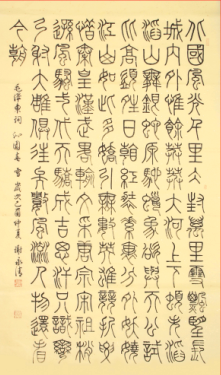 北國風光千里冰封萬里雪飄望長
城內外惟餘莽莽大河上下頓失滔
滔山舞銀蛇原馳蠟象欲與天公試
比高須晴日看紅裝素裹分外妖嬈
江山如此多嬌引無數英雄競折腰
惜秦皇漢武略輸文采唐宗宋祖稍
遜風騷一代天驕成吉思汗只識彎
弓射大雕俱往矣數風流人物還看
今朝
毛澤東詞 沁園春 雪 歲次乙酉仲夏